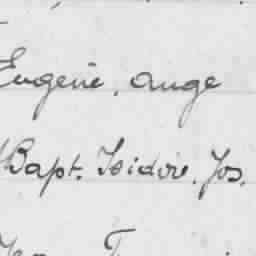 Eugénie, ange
Bapt. Isidore, Jos.